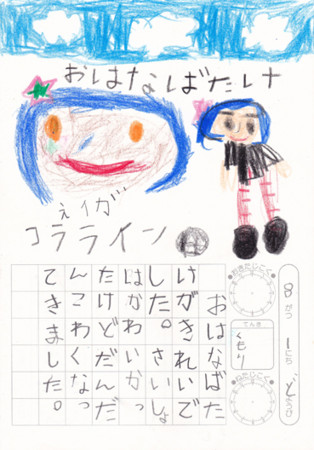 おはなばたけ
えいが
コラライン
8がつ1にちどようび
おきたじかん
てんき
くもり
ねたじかん
おはなばた
けがきれいで
した。さいしょ
はかわいかっ
たけどだんだ
んこわくなっ
てきました。